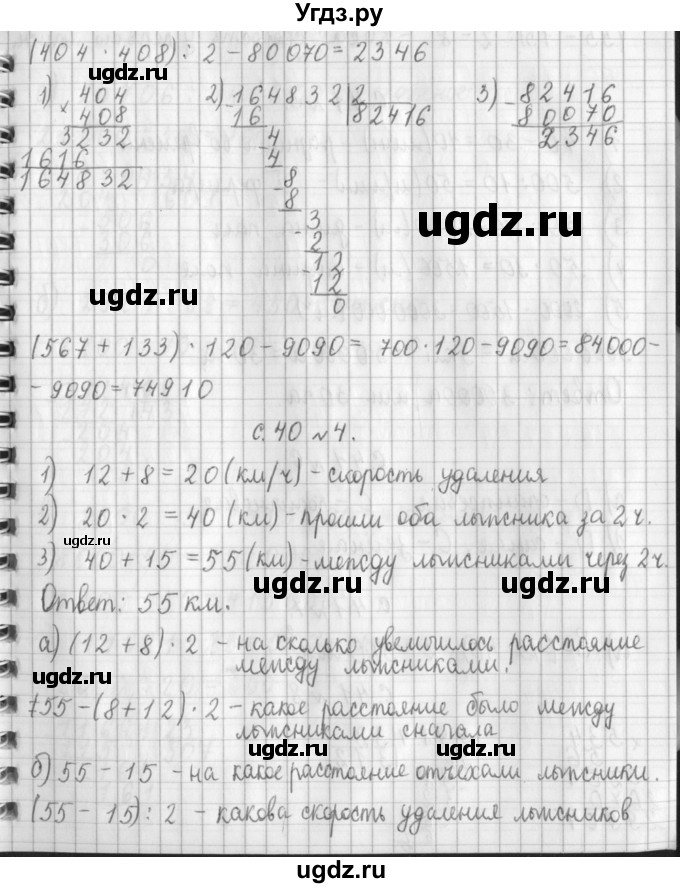 Угдз.ру
(404 · 408) : 2 - 80070 = 2346
1) × 404
408
3232
1616
164832
2) 164832 | 2
- 16 82416
- 4
4
- 8
8
- 3
2
- 12
12
0
3) - 82416
80070
2346
ugdz.ru
ugdz.ru
(567 + 133) · 120 - 9090 = 700 · 120 - 9090 = 84000 -
- 9090 = 74910
с. 40 №4.
1) 12 + 8 = 20 (км/ч) - скорость удаления
ugdz.ru
2) 20 · 2 = 40 (км) - прошли оба лыжника за 2 ч.
ugdz.ru
3) 40 + 15 = 55 (км) - между лыжниками через 2 ч.
ugdz.ru ugdz.ru
Ответ: 55 км.
а) (12 + 8) · 2 - на сколько увеличилось расстояние
между лыжниками.
ugdz.ru
55 - (8 + 12) · 2 - какое расстояние было между
лыжниками сначала
ugdz.ru ugdz.ru
б) 55 - 15 - на какое расстояние отъехали лыжники.
(55 - 15) : 2 - какова скорость удаления лыжников
ugdz.ru ugdz.ru
ugdz.ru